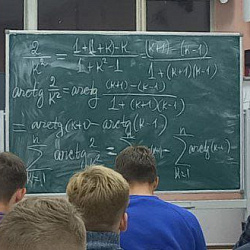 2/k² = 1+(1+k)-k / 1+k²-1 = (k+1)-(k-1) / 1+(k+1)(k-1)
arctg 2/k² = arctg (k+1)-(k-1) / 1+(k+1)(k-1)
= arctg(k+1) - arctg(k-1)
n ∑ k=1 arctg 2/k² = - n ∑ k=1 arctg(k-1) =